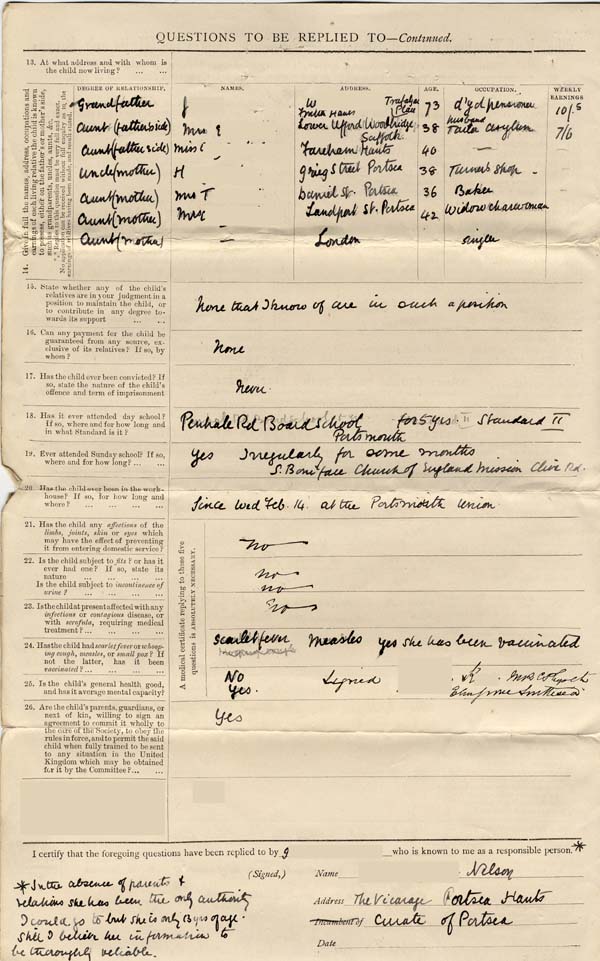 QUESTIONS TO BE REPLIED TO—Continued.
13. At what address and with whom is
the child now living? ... ...
14. Give in full the names, address, occupations and
earnings of each living relative the child is known
to possess, either on the father's or mother's side,
such as grandparents, uncles, aunts, &c.
DEGREE OF RELATIONSHIP. NAMES. ADDRESS. AGE. OCCUPATION. WEEKLY EARNINGS
Grandfather J Trafalgar Place Hants 73 pensioner 10/
Aunt (father side) Mrs E Lower Ufford Woodbridge Suffolk 38 husband Tailor asylum 7/6
Aunt (father side) Miss E Fareham Hants 40 —
Uncle (mother) H Greig Street Portsea 38 Turner's Shop
Aunt (mother) Mrs T Daniel St. Portsea 36 Baker
Aunt (mother) Mrs Landport St. Portsea 42 Widow charwoman
Aunt (mother) — London single
15. State whether any of the child's
relatives are in your judgment in a
position to maintain the child, or
to contribute in any degree to-
wards its support ...
None that I know of are in such a position
16. Can any payment for the child be
guaranteed from any source, ex-
clusive of its relatives? If so, by
whom?
None
17. Has the child ever been convicted? If
so, state the nature of the child's
offence and term of imprisonment
Never
18. Has it ever attended day school?
If so, where and for how long and
in what Standard is it?
Penhale Rd Board School for 5 yrs. Standard II
Portsmouth
19. Ever attended Sunday school? If so,
where and for how long? ... ...
Yes Irregularly for some months
S. Boniface Church of England Mission Clive Rd.
20. Has the child ever been in the work-
house? If so, for how long and
where? ... ... ...
Since Wed Feb. 14. at the Portsmouth Union.
A medical certificate replying to these five
questions is ABSOLUTELY NECESSARY.
21. Has the child any affections of the
limbs, joints, skin or eyes which
may have the effect of preventing
it from entering domestic service?
No
22. Is the child subject to fits? or has it
ever had one? If so, state its
nature ... ... ... ...
Is the child subject to incontinence of
urine? ... ... ... ...
No
No
23. Is the child at present affected with any
infectious or contagious disease, or
with scrofula, requiring medical
treatment? ... ... ...
No
24. Has the child had scarlet fever or whoop-
ing cough, measles, or small pox? If
not the latter, has it been
vaccinated? ... ... ...
Scarlet fever Measles yes she has been vaccinated
25. Is the child's general health good,
and has it average mental capacity?
No
Yes. Signed
26. Are the child's parents, guardians, or
next of kin, willing to sign an
agreement to commit it wholly to
the care of the Society, to obey the
rules in force, and to permit the said
child when fully trained to be sent
to any situation in the United
Kingdom which may be obtained
for it by the Committee? ... ...
Yes
I certify that the foregoing questions have been replied to by J who is known to me as a responsible person. *
(Signed,) Name Nelson
Address The Vicarage Portsea Hants
Incumbent of Curate of Portsea
Date
* In the absence of parents &
relations she has been the only authority
I could go to but she is only 13 yrs of age.
Still I believe her information to
be thoroughly reliable.